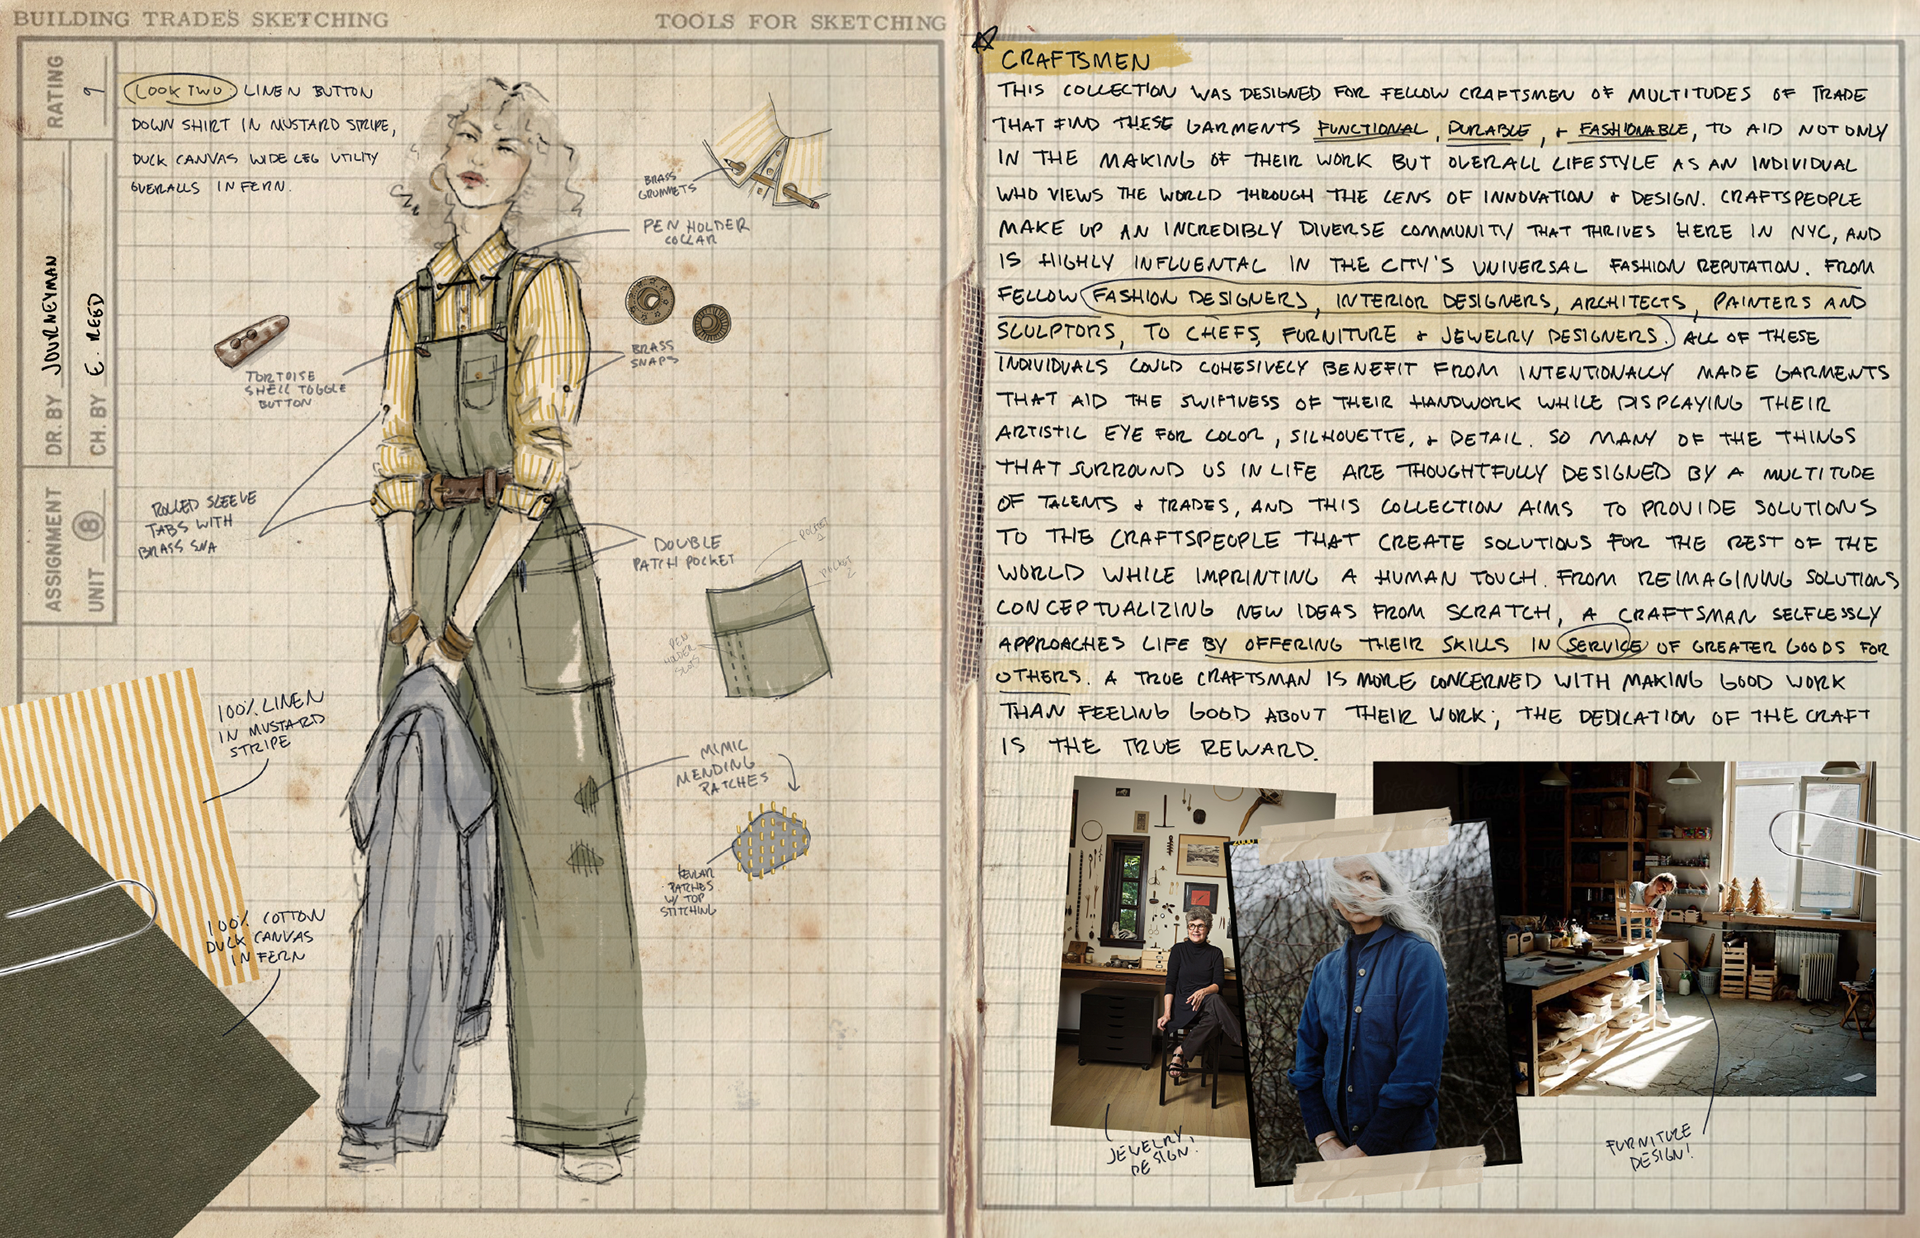 BUILDING TRADES SKETCHING
TOOLS FOR SKETCHING
RATING
9
DR. BY JOURNEYMAN
CH. BY E. REED
ASSIGNMENT
UNIT 8
LOOK TWO LINEN BUTTON
DOWN SHIRT IN MUSTARD STRIPE,
DUCK CANVAS WIDE LEG UTILITY
OVERALLS IN FERN.
BRASS
GRUMMETS
PEN HOLDER
COLLAR
BRASS
SNAPS
TORTOISE
SHELL TOGGLE
BUTTON
ROLLED SLEEVE
TABS WITH
BRASS SNA
DOUBLE
PATCH POCKET
POCKET
1
POCKET
2
PEN
HOLDER
SLOTS
MIMIC
MENDING
PATCHES
KEVLAR
PATCHES
W/ TOP
STITCHING
100% LINEN
IN MUSTARD
STRIPE
100% COTTON
DUCK CANVAS
IN FERN
CRAFTSMEN
THIS COLLECTION WAS DESIGNED FOR FELLOW CRAFTSMEN OF MULTITUDES OF TRADE
THAT FIND THESE GARMENTS FUNCTIONAL, DURABLE, + FASHIONABLE, TO AID NOT ONLY
IN THE MAKING OF THEIR WORK BUT OVERALL LIFESTYLE AS AN INDIVIDUAL
WHO VIEWS THE WORLD THROUGH THE LENS OF INNOVATION + DESIGN. CRAFTSPEOPLE
MAKE UP AN INCREDIBLY DIVERSE COMMUNITY THAT THRIVES HERE IN NYC, AND
IS HIGHLY INFLUENTAL IN THE CITY'S UNIVERSAL FASHION REPUTATION. FROM
FELLOW FASHION DESIGNERS, INTERIOR DESIGNERS, ARCHITECTS, PAINTERS AND
SCULPTORS, TO CHEFS, FURNITURE + JEWELRY DESIGNERS. ALL OF THESE
INDIVIDUALS COULD COHESIVELY BENEFIT FROM INTENTIONALLY MADE GARMENTS
THAT AID THE SWIFTNESS OF THEIR HANDWORK WHILE DISPLAYING THEIR
ARTISTIC EYE FOR COLOR, SILHOUETTE, + DETAIL. SO MANY OF THE THINGS
THAT SURROUND US IN LIFE ARE THOUGHTFULLY DESIGNED BY A MULTITUDE
OF TALENTS + TRADES, AND THIS COLLECTION AIMS TO PROVIDE SOLUTIONS
TO THE CRAFTSPEOPLE THAT CREATE SOLUTIONS FOR THE REST OF THE
WORLD WHILE IMPRINTING A HUMAN TOUCH. FROM REIMAGINING SOLUTIONS
CONCEPTUALIZING NEW IDEAS FROM SCRATCH, A CRAFTSMAN SELFLESSLY
APPROACHES LIFE BY OFFERING THEIR SKILLS IN SERVICE OF GREATER GOODS FOR
OTHERS. A TRUE CRAFTSMAN IS MORE CONCERNED WITH MAKING GOOD WORK
THAN FEELING GOOD ABOUT THEIR WORK; THE DEDICATION OF THE CRAFT
IS THE TRUE REWARD.
JEWELRY
DESIGN!
FURNITURE
DESIGN!